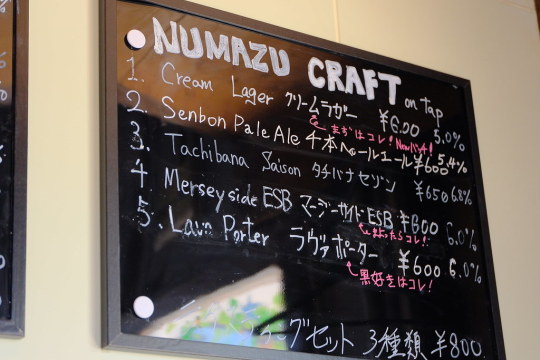 NUMAZU CRAFT on tap
1. Cream Lager クリームラガー ¥600 5.0%
まずはコレ! Newバッチ!
2. Senbon Pale Ale 千本ペールエール ¥600 5.4%
3. Tachibana Saison タチバナセゾン ¥650 6.8%
4. Merseyside ESB マージーサイドESB ¥600 6.0%
まよったらコレ!
5. Lava Porter ラヴァポーター ¥600 6.0%
黒好きはコレ!
グセット 3種類 ¥800